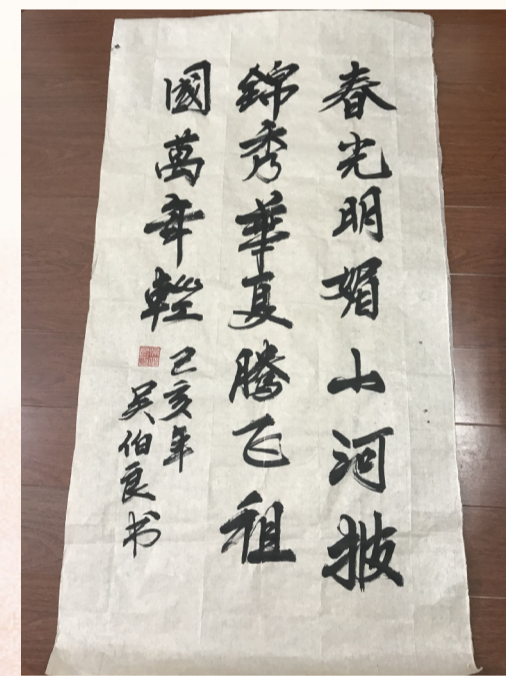 春光明媚山河披
錦秀華夏騰飞祖
國萬年輕
己亥年
吴伯良书